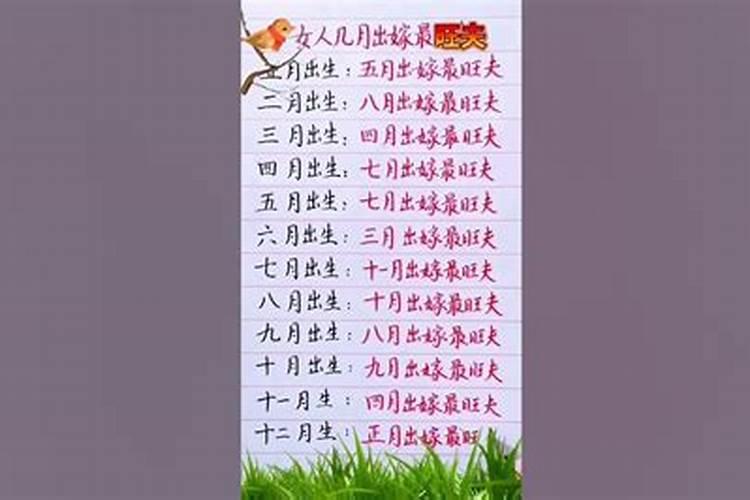 女人几月出嫁最旺夫
正月出生：五月出嫁最旺夫
二月出生：八月出嫁最旺夫
三月出生：四月出嫁最旺夫
四月出生：七月出嫁最旺夫
五月出生：七月出嫁最旺夫
六月出生：三月出嫁最旺夫
七月出生：十一月出嫁最旺夫
八月出生：十月出嫁最旺夫
九月出生：八月出嫁最旺夫
十月出生：九月出嫁最旺夫
十一月生：四月出嫁最旺夫
十二月生：正月出嫁最旺